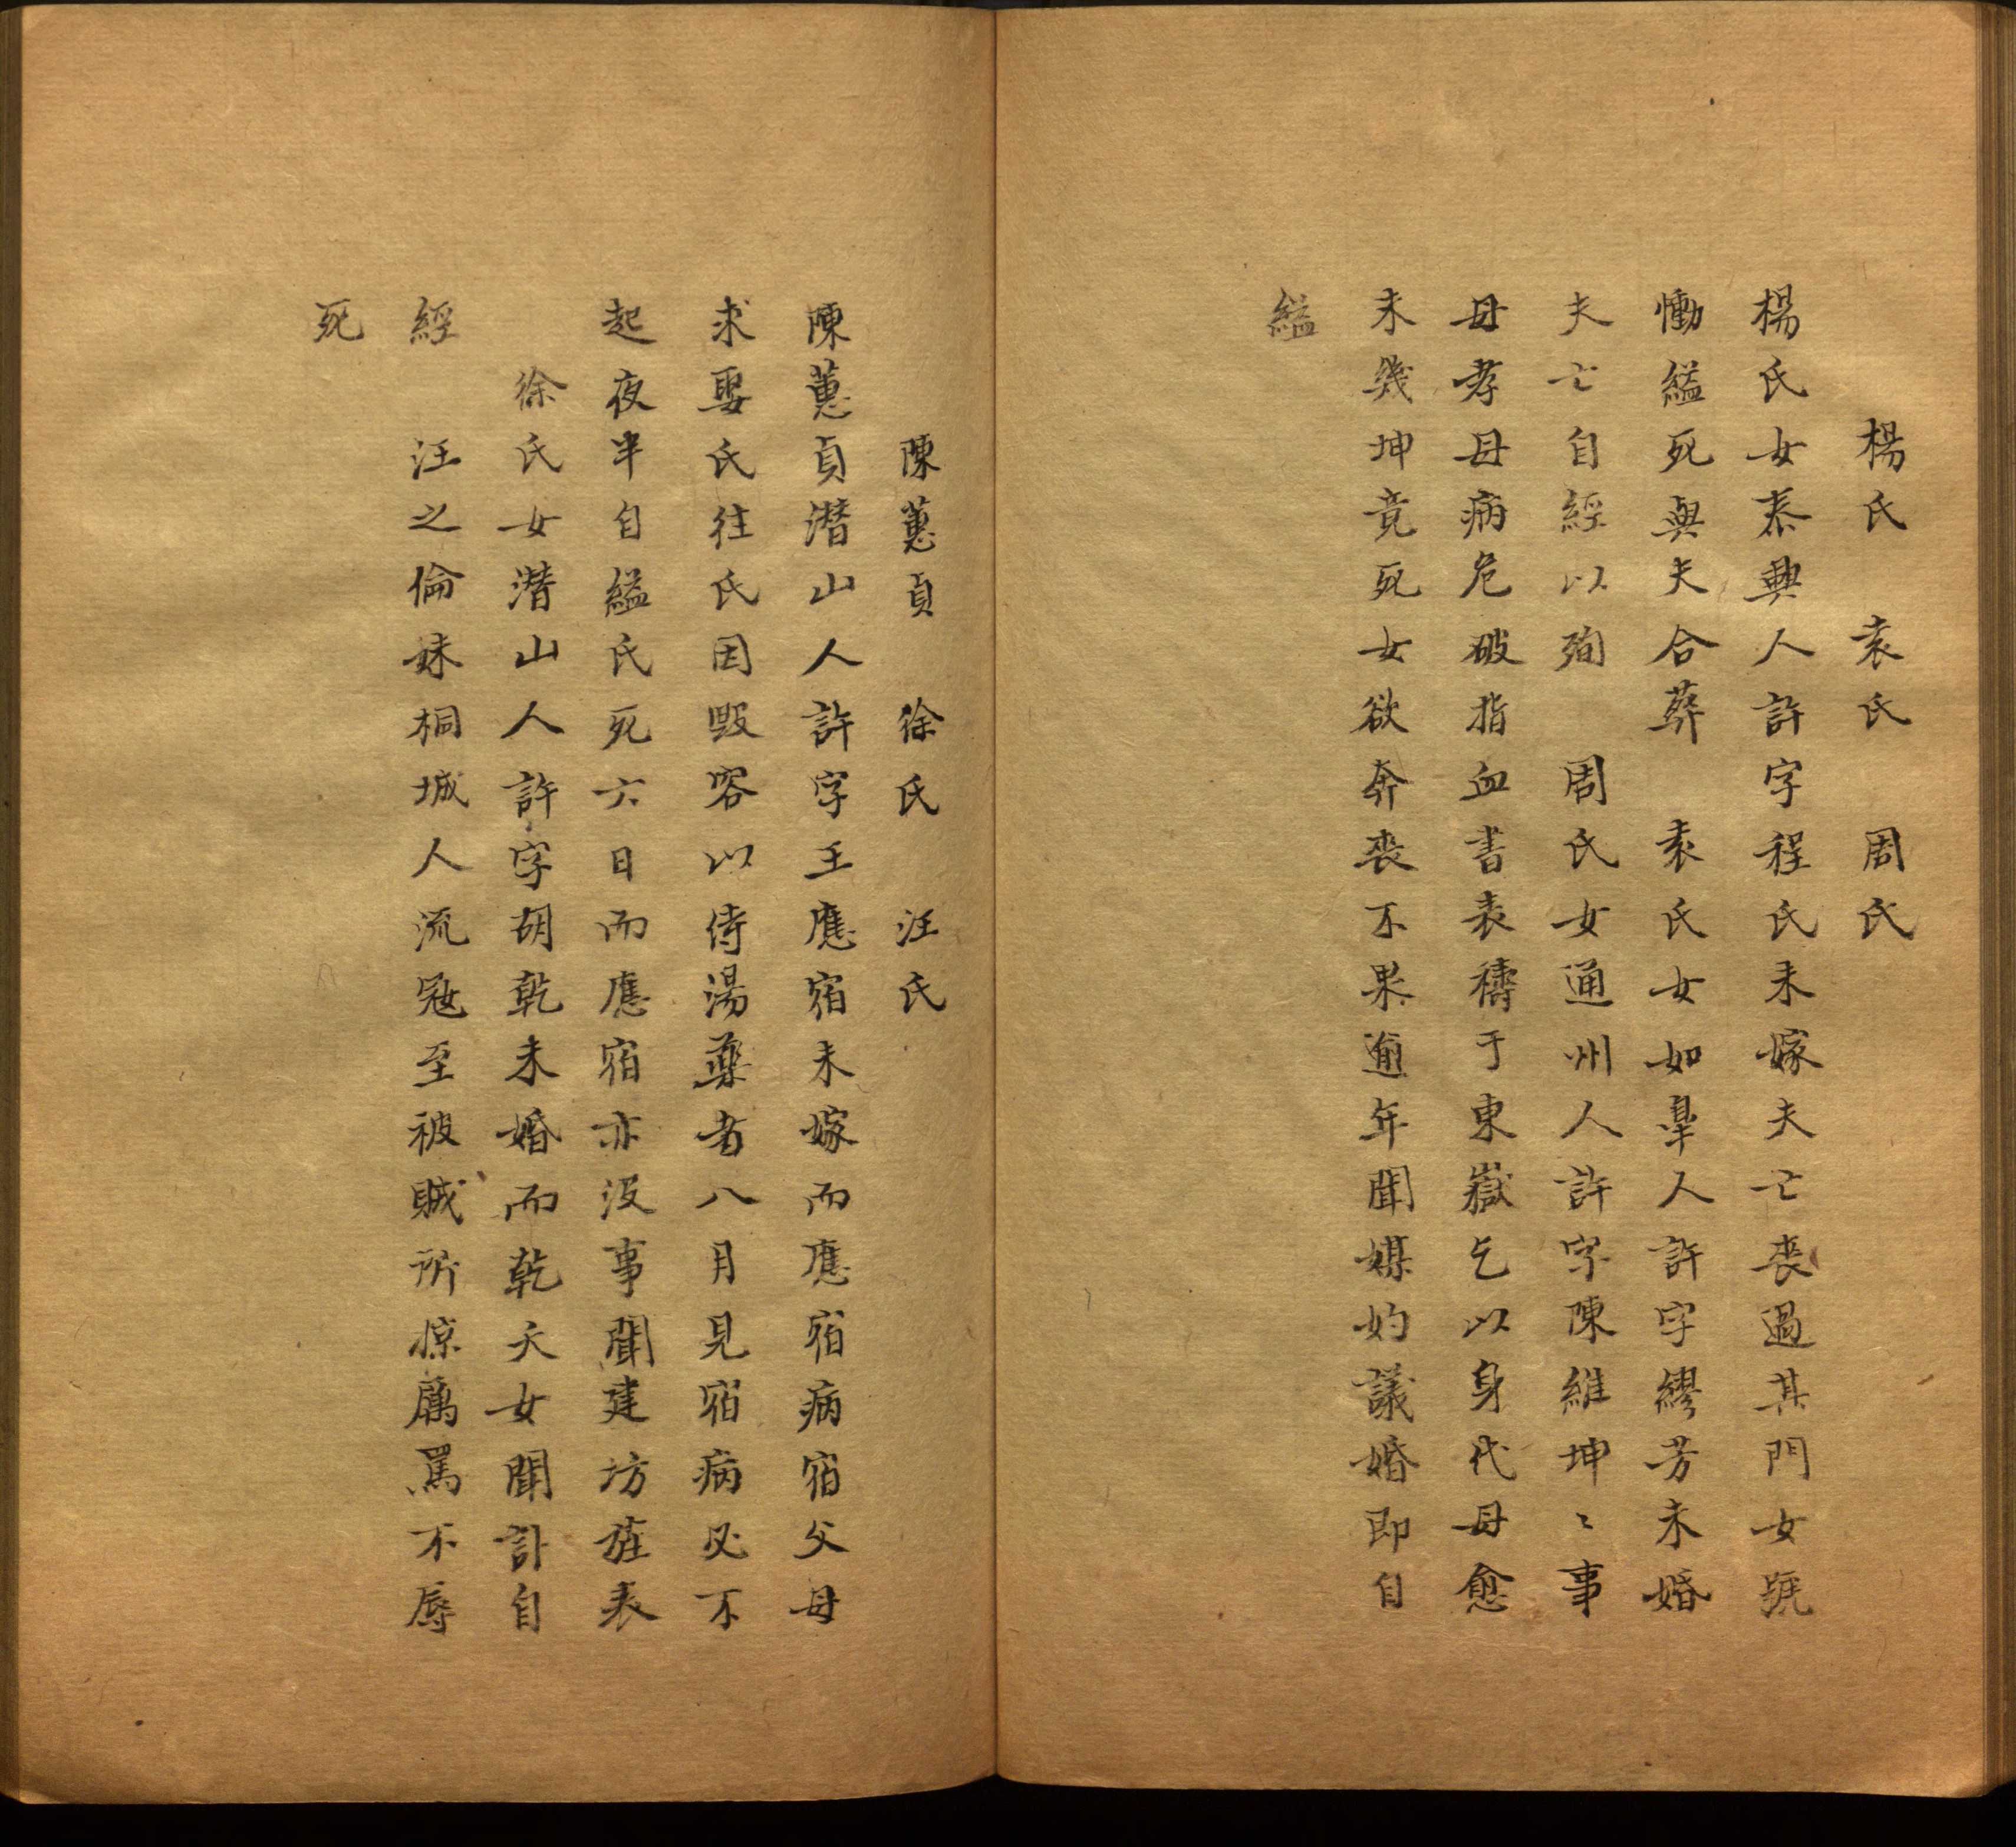 楊氏 袁氏 周氏
楊氏女泰興人許字程氏未嫁夫亡喪過其門女號
慟縊死與夫合葬 袁氏女女如臯人許字繆芳未婚
夫亡自經以殉 周氏女通州人許字陳維坤〻事
母孝母病危破指血書表禱于東嶽乞以身代母愈
未幾坤竟死女欲奔喪不果逾年聞媒妁議婚即自
縊
陳蕙貞 徐氏 汪氏
陳蕙貞潛山人許字王應宿未嫁而應宿病宿父母
求娶氏往氏因毀容以侍湯藥者八月見宿病必不
起夜半自縊氏死六日而應宿亦沒事聞建坊旌表
徐氏女潛山人許字胡乾未婚而乾夭女聞訃自
經 汪之倫妹桐城人流寇至被賊所掠厲罵不辱
死